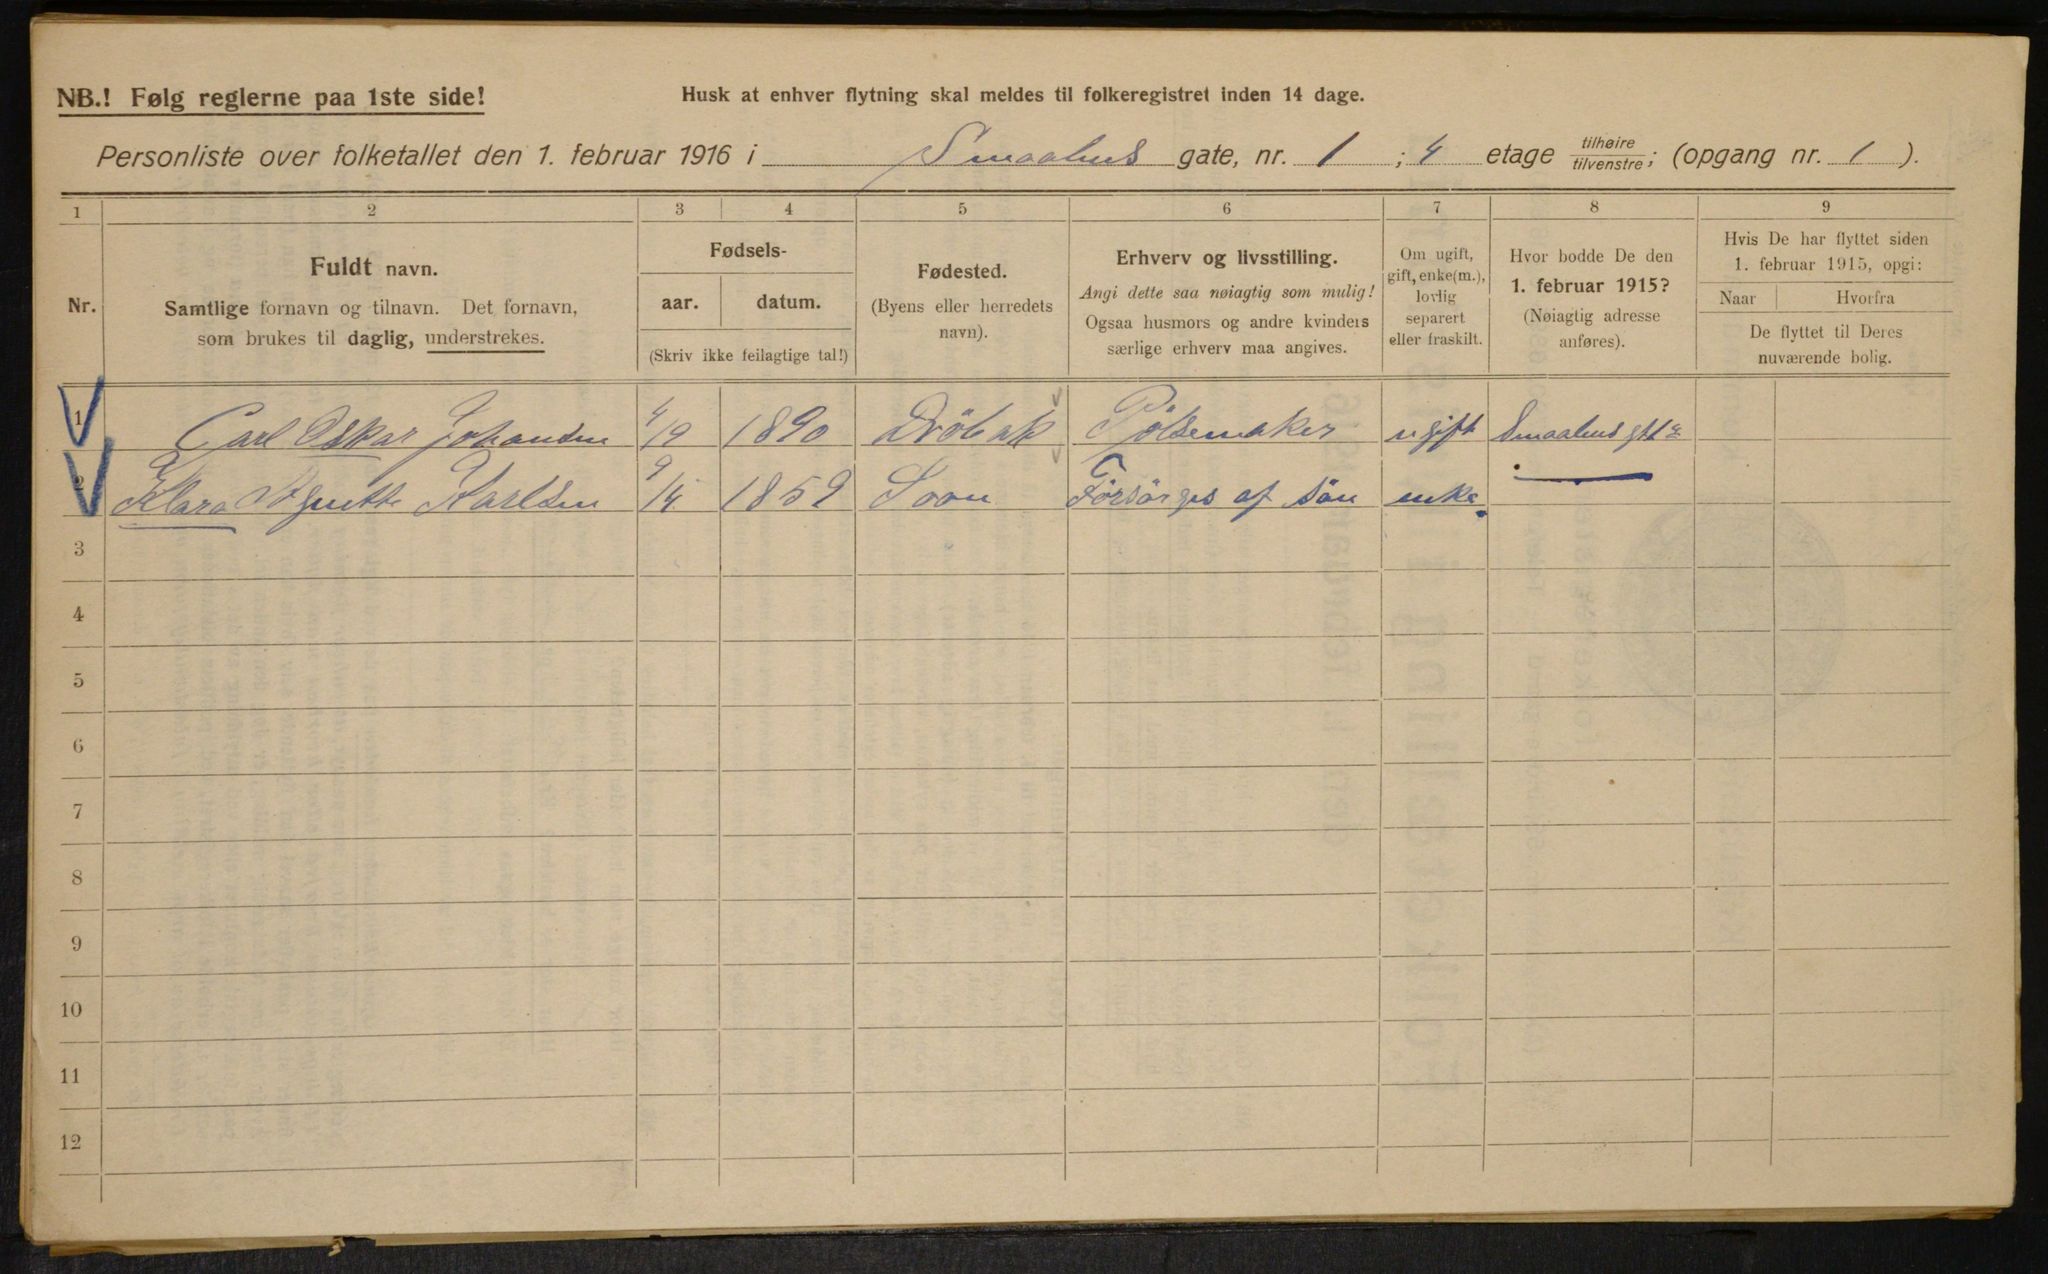 NB.! Følg reglerne paa 1ste side!
Husk at enhver flytning skal meldes til folkeregistret inden 14 dage.
Personliste over folketallet den 1. februar 1916 i Smaahus gate, nr. 1 ; 4 etage tilhøire tilvenstre; (opgang nr. 1 ).
1 2 3 4 5 6 7 8 9
Nr.
Fuldt navn.
Samtlige fornavn og tilnavn. Det fornavn,
som brukes til daglig, understrekes.
Fødsels-
aar. datum.
(Skriv ikke feilagtige tal!)
Fødested.
(Byens eller herredets
navn).
Erhverv og livsstilling.
Angi dette saa nøiagtig som mulig!
Ogsaa husmors og andre kvinders
særlige erhverv maa angives.
Om ugift,
gift, enke(m.),
lovlig
separert
eller fraskilt.
Hvor bodde De den
1. februar 1915?
(Nøiagtig adresse
anføres).
Hvis De har flyttet siden
1. februar 1915, opgi:
Naar Hvorfra
De flyttet til Deres
nuværende bolig.
1 Carl Oskar Johansen 4/9 1890 Dröbak Pölsemaker ugift Smaahus gt
2 Klara Agnette Karlsen 9/4 1859 Soon Försörges af sön enke
3
4
5
6
7
8
9
10
11
12